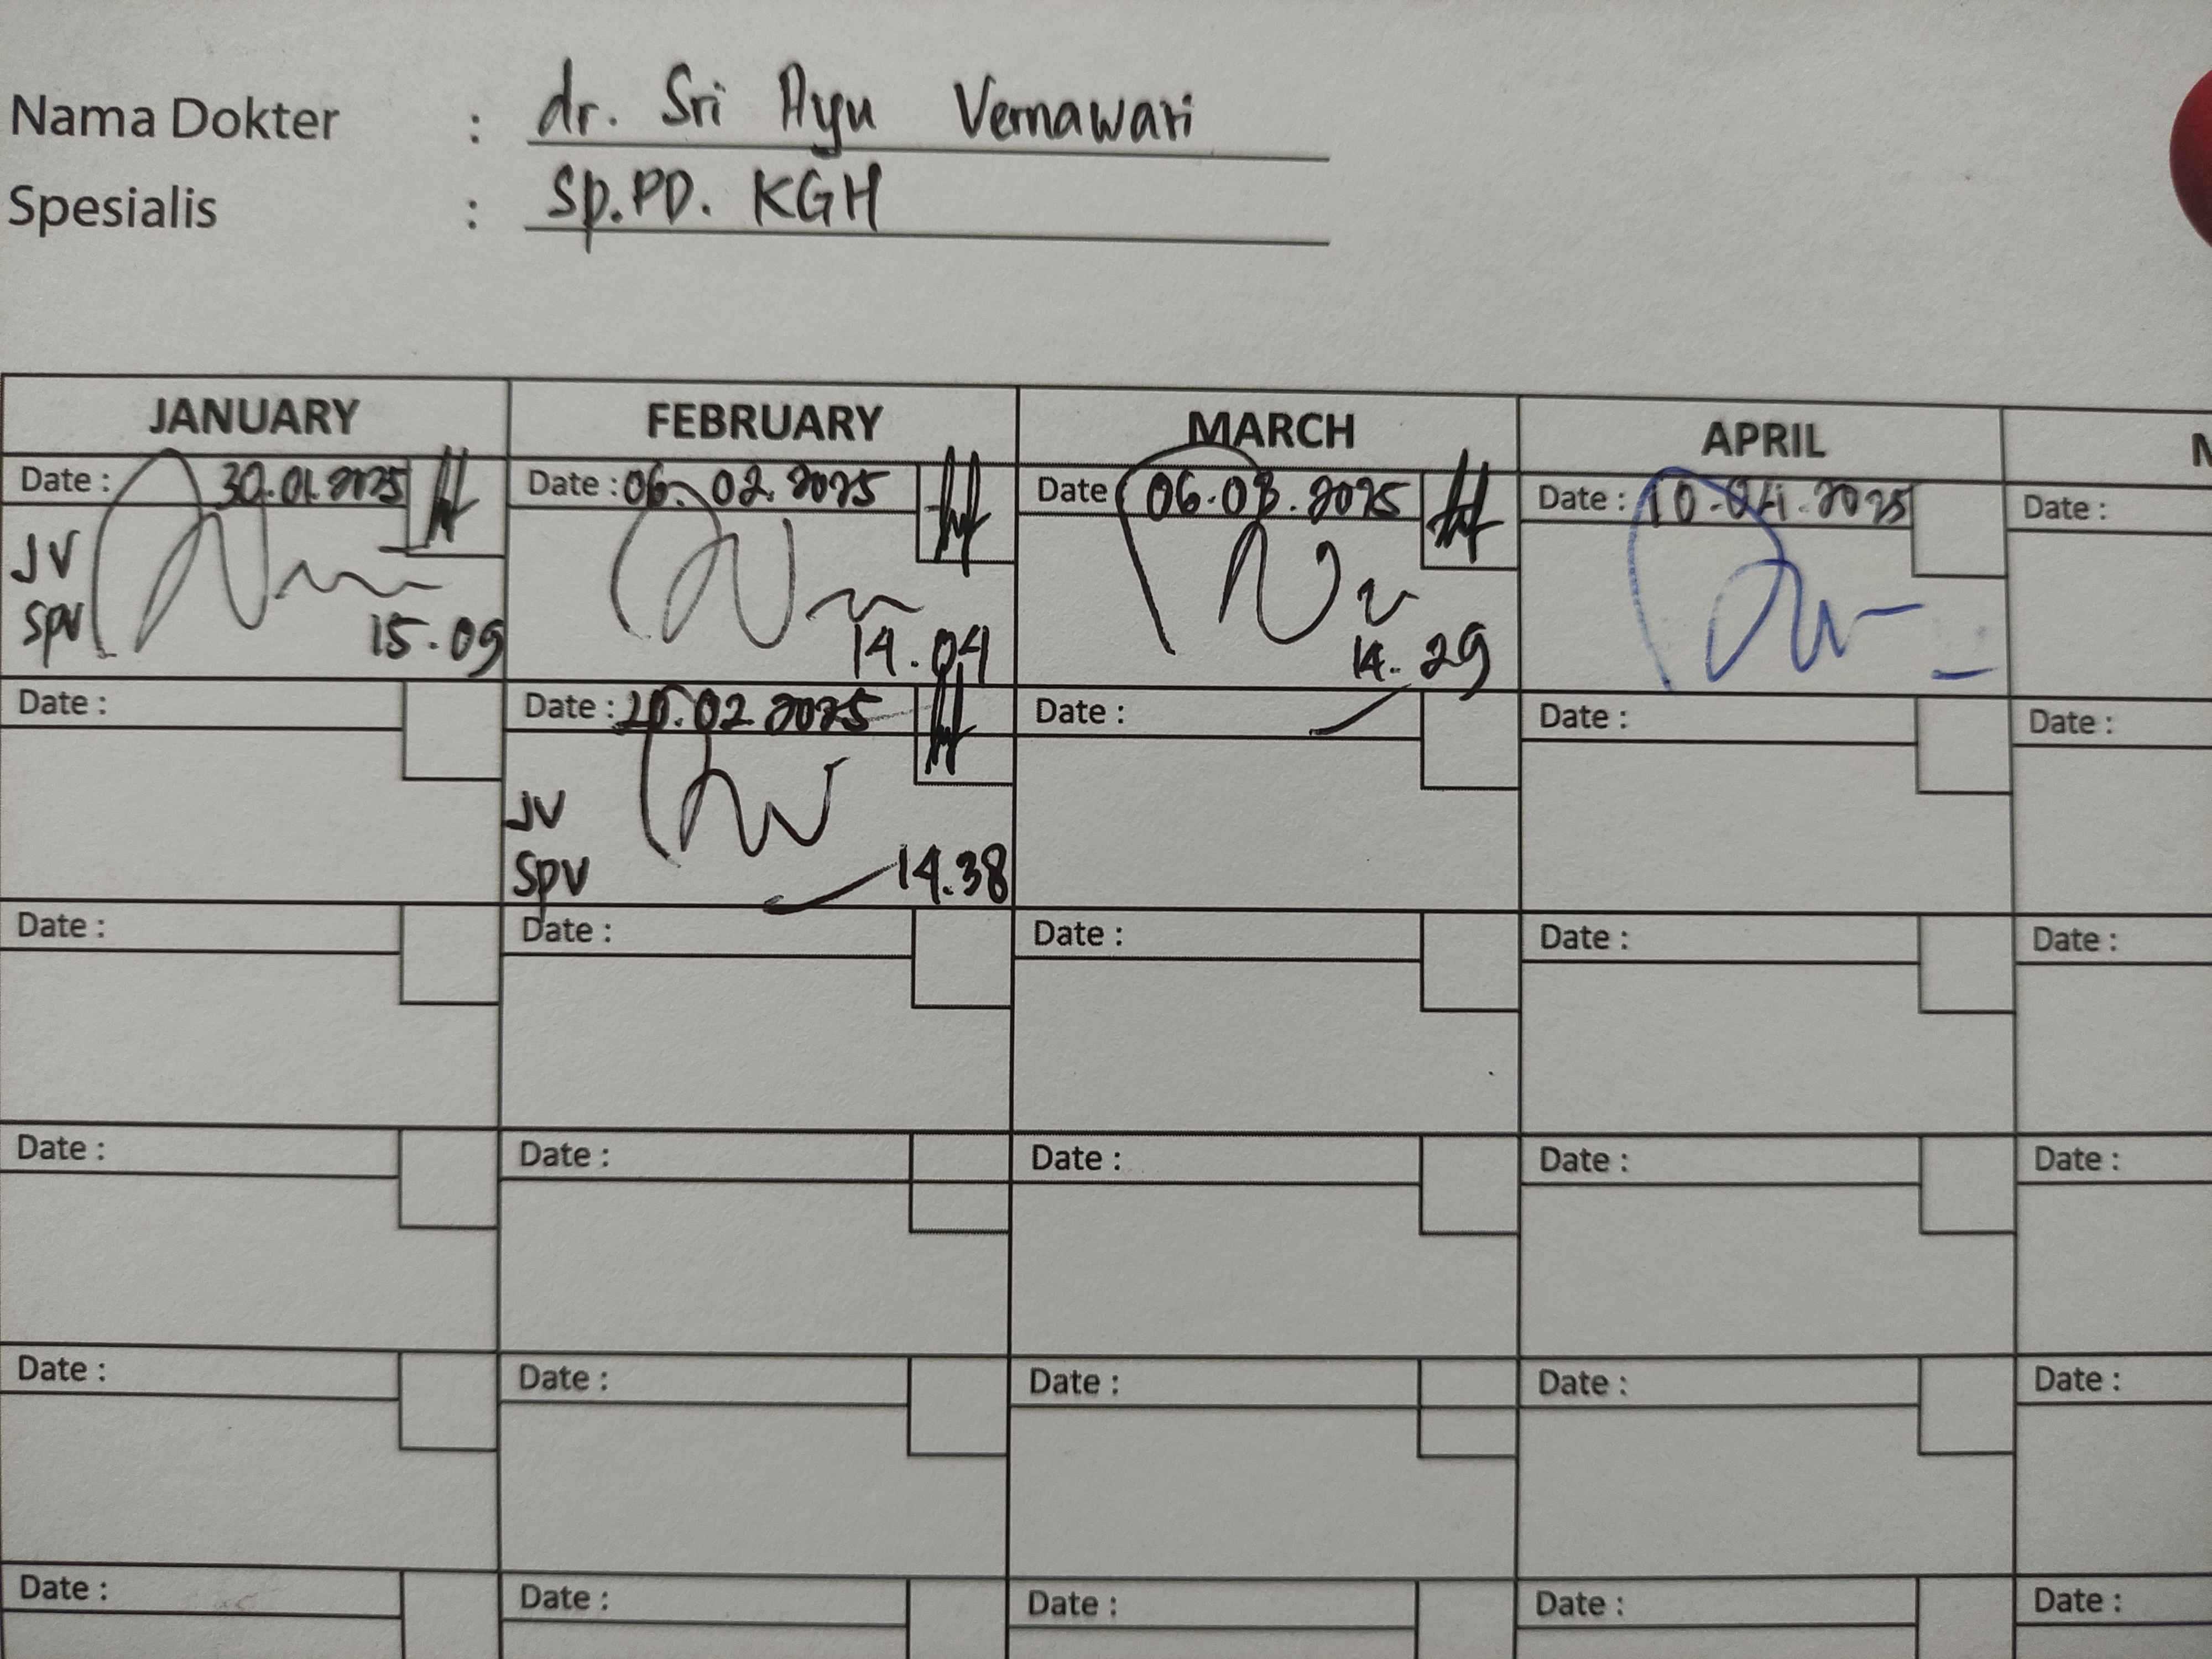 Nama Dokter : dr. Sri Ayu Vernawari
Spesialis : Sp.PD. KGH
JANUARY FEBRUARY MARCH APRIL
Date : 30.01.2025 Date : 06.02.2025 Date 06.03.2025 Date : 10.04.2025 Date :
JV
SPV 15.09 14.04 14.29
Date : Date : 20.02 2025 Date : Date : Date :
JV
SPV 14.38
Date : Date : Date : Date : Date :
Date : Date : Date : Date : Date :
Date : Date : Date : Date : Date :
Date : Date : Date : Date : Date :